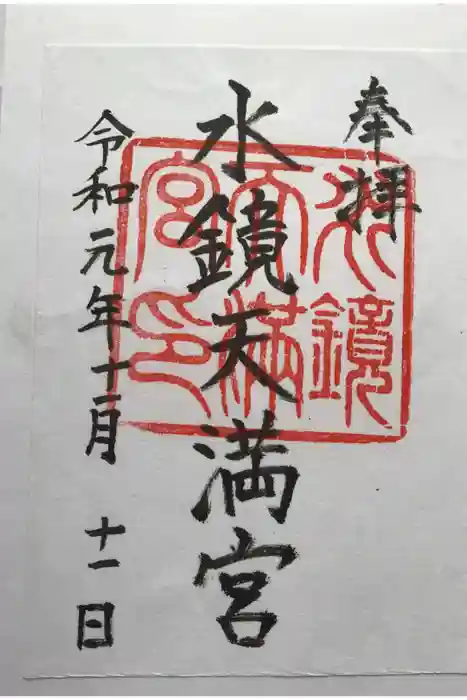 奉拝
水鏡天満宮
令和元年十一月十一日
水鏡
天満
宮印